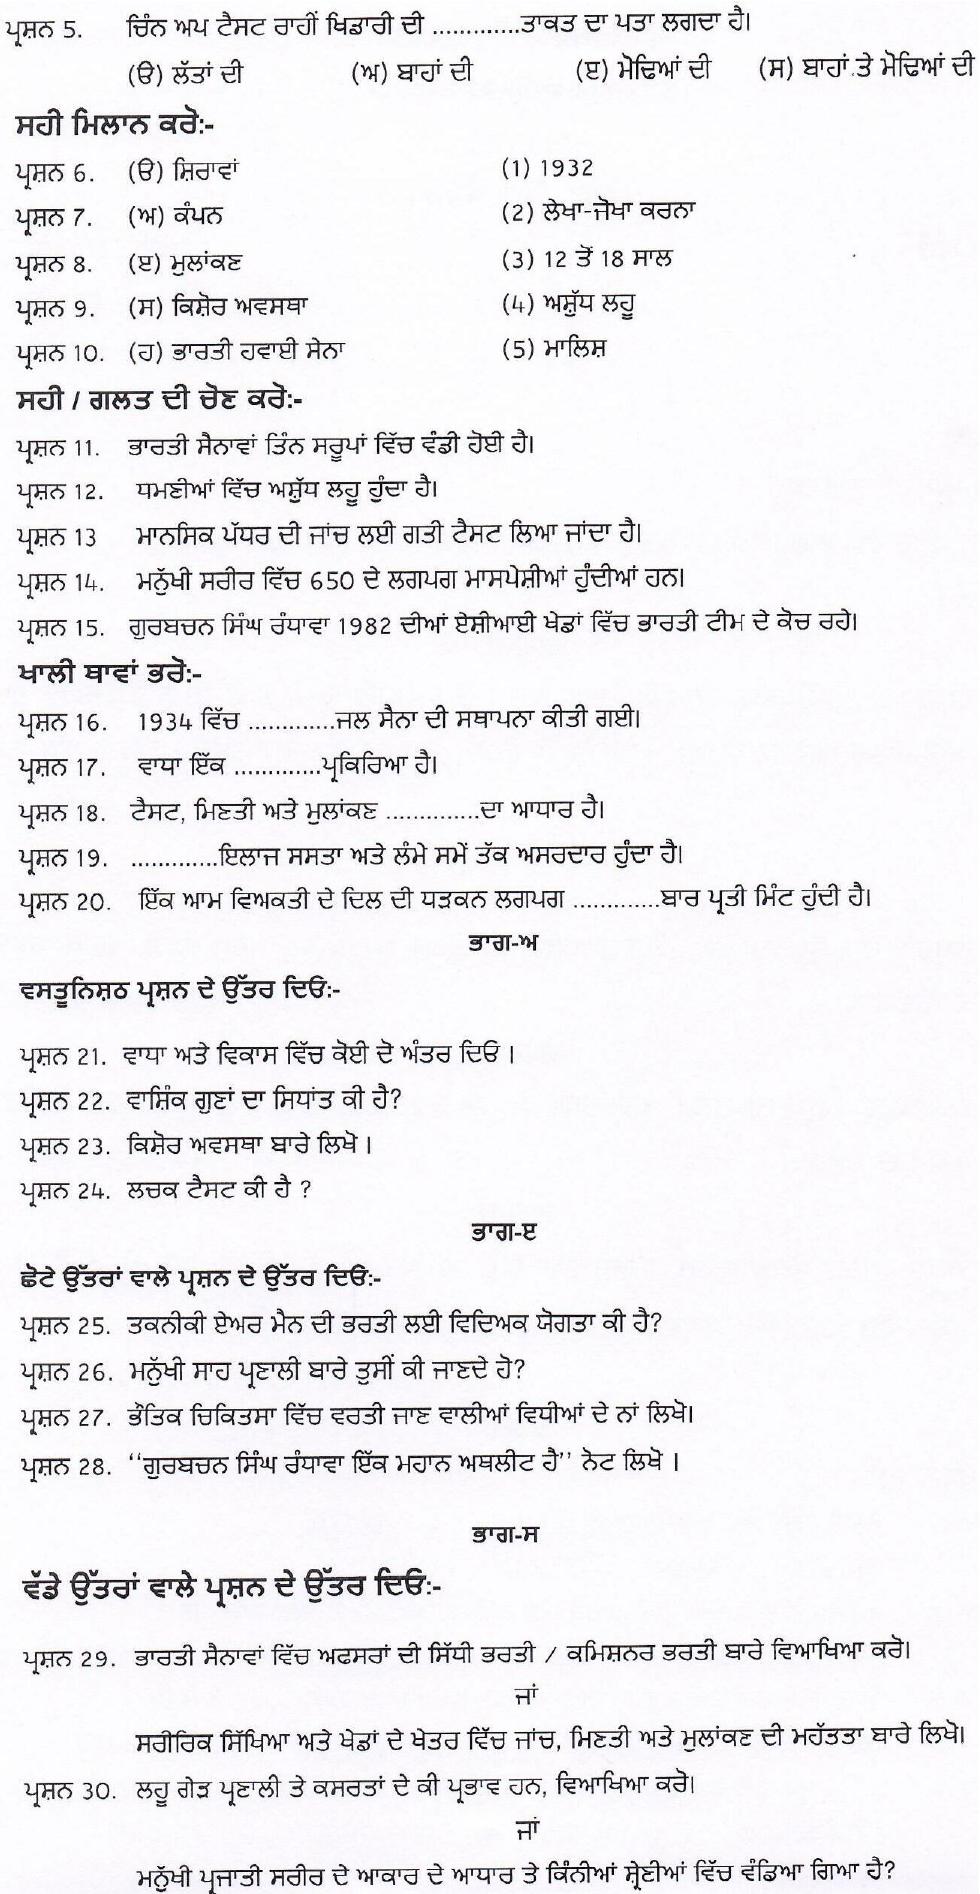 ਪ੍ਰਸ਼ਨ 5. ਚਿੰਨ ਅਪ ਟੈਸਟ ਰਾਹੀਂ ਖਿਡਾਰੀ ਦੀ .............ਤਾਕਤ ਦਾ ਪਤਾ ਲਗਦਾ ਹੈ।
(ੳ) ਲੱਤਾਂ ਦੀ (ਅ) ਬਾਹਾਂ ਦੀ (ੲ) ਮੋਢਿਆਂ ਦੀ (ਸ) ਬਾਹਾਂ ਤੇ ਮੋਢਿਆਂ ਦੀ
ਸਹੀ ਮਿਲਾਨ ਕਰੋ:-
ਪ੍ਰਸ਼ਨ 6. (ੳ) ਸ਼ਿਰਾਵਾਂ (1) 1932
ਪ੍ਰਸ਼ਨ 7. (ਅ) ਕੰਪਨ (2) ਲੇਖਾ-ਜੋਖਾ ਕਰਨਾ
ਪ੍ਰਸ਼ਨ 8. (ੲ) ਮੁਲਾਂਕਣ (3) 12 ਤੋਂ 18 ਸਾਲ
ਪ੍ਰਸ਼ਨ 9. (ਸ) ਕਿਸ਼ੋਰ ਅਵਸਥਾ (4) ਅਸ਼ੁੱਧ ਲਹੂ
ਪ੍ਰਸ਼ਨ 10. (ਹ) ਭਾਰਤੀ ਹਵਾਈ ਸੇਨਾ (5) ਮਾਲਿਸ਼
ਸਹੀ / ਗਲਤ ਦੀ ਚੋਣ ਕਰੋ:-
ਪ੍ਰਸ਼ਨ 11. ਭਾਰਤੀ ਸੈਨਾਵਾਂ ਤਿੰਨ ਸਰੂਪਾਂ ਵਿੱਚ ਵੰਡੀ ਹੋਈ ਹੈ।
ਪ੍ਰਸ਼ਨ 12. ਧਮਣੀਆਂ ਵਿੱਚ ਅਸ਼ੁੱਧ ਲਹੂ ਹੁੰਦਾ ਹੈ।
ਪ੍ਰਸ਼ਨ 13 ਮਾਨਸਿਕ ਪੱਧਰ ਦੀ ਜਾਂਚ ਲਈ ਗਤੀ ਟੈਸਟ ਲਿਆ ਜਾਂਦਾ ਹੈ।
ਪ੍ਰਸ਼ਨ 14. ਮਨੁੱਖੀ ਸਰੀਰ ਵਿੱਚ 650 ਦੇ ਲਗਪਗ ਮਾਸਪੇਸ਼ੀਆਂ ਹੁੰਦੀਆਂ ਹਨ।
ਪ੍ਰਸ਼ਨ 15. ਗੁਰਬਚਨ ਸਿੰਘ ਰੰਧਾਵਾ 1982 ਦੀਆਂ ਏਸ਼ੀਆਈ ਖੇਡਾਂ ਵਿੱਚ ਭਾਰਤੀ ਟੀਮ ਦੇ ਕੋਚ ਰਹੇ।
ਖਾਲੀ ਥਾਵਾਂ ਭਰੋ:-
ਪ੍ਰਸ਼ਨ 16. 1934 ਵਿੱਚ .............ਜਲ ਸੈਨਾ ਦੀ ਸਥਾਪਨਾ ਕੀਤੀ ਗਈ।
ਪ੍ਰਸ਼ਨ 17. ਵਾਧਾ ਇੱਕ .............ਪ੍ਰਕਿਰਿਆ ਹੈ।
ਪ੍ਰਸ਼ਨ 18. ਟੈਸਟ, ਮਿਣਤੀ ਅਤੇ ਮੁਲਾਂਕਣ ..............ਦਾ ਆਧਾਰ ਹੈ।
ਪ੍ਰਸ਼ਨ 19. .............ਇਲਾਜ ਸਸਤਾ ਅਤੇ ਲੰਮੇ ਸਮੇਂ ਤੱਕ ਅਸਰਦਾਰ ਹੁੰਦਾ ਹੈ।
ਪ੍ਰਸ਼ਨ 20. ਇੱਕ ਆਮ ਵਿਅਕਤੀ ਦੇ ਦਿਲ ਦੀ ਧੜਕਨ ਲਗਪਗ .............ਬਾਰ ਪ੍ਰਤੀ ਮਿੰਟ ਹੁੰਦੀ ਹੈ।
ਭਾਗ-ਅ
ਵਸਤੂਨਿਸ਼ਠ ਪ੍ਰਸ਼ਨ ਦੇ ਉੱਤਰ ਦਿਓ:-
ਪ੍ਰਸ਼ਨ 21. ਵਾਧਾ ਅਤੇ ਵਿਕਾਸ ਵਿੱਚ ਕੋਈ ਦੋ ਅੰਤਰ ਦਿਓ ।
ਪ੍ਰਸ਼ਨ 22. ਵਾਸ਼ਿੰਕ ਗੁਣਾਂ ਦਾ ਸਿਧਾਂਤ ਕੀ ਹੈ?
ਪ੍ਰਸ਼ਨ 23. ਕਿਸ਼ੋਰ ਅਵਸਥਾ ਬਾਰੇ ਲਿਖੋ ।
ਪ੍ਰਸ਼ਨ 24. ਲਚਕ ਟੈਸਟ ਕੀ ਹੈ ?
ਭਾਗ-ੲ
ਛੋਟੇ ਉੱਤਰਾਂ ਵਾਲੇ ਪ੍ਰਸ਼ਨ ਦੇ ਉੱਤਰ ਦਿਓ:-
ਪ੍ਰਸ਼ਨ 25. ਤਕਨੀਕੀ ਏਅਰ ਮੈਨ ਦੀ ਭਰਤੀ ਲਈ ਵਿਦਿਅਕ ਯੋਗਤਾ ਕੀ ਹੈ?
ਪ੍ਰਸ਼ਨ 26. ਮਨੁੱਖੀ ਸਾਹ ਪ੍ਰਣਾਲੀ ਬਾਰੇ ਤੁਸੀਂ ਕੀ ਜਾਣਦੇ ਹੋ?
ਪ੍ਰਸ਼ਨ 27. ਭੌਤਿਕ ਚਿਕਿਤਸਾ ਵਿੱਚ ਵਰਤੀ ਜਾਣ ਵਾਲੀਆਂ ਵਿਧੀਆਂ ਦੇ ਨਾਂ ਲਿਖੋ।
ਪ੍ਰਸ਼ਨ 28. ‘‘ਗੁਰਬਚਨ ਸਿੰਘ ਰੰਧਾਵਾ ਇੱਕ ਮਹਾਨ ਅਥਲੀਟ ਹੈ’’ ਨੋਟ ਲਿਖੋ ।
ਭਾਗ-ਸ
ਵੱਡੇ ਉੱਤਰਾਂ ਵਾਲੇ ਪ੍ਰਸ਼ਨ ਦੇ ਉੱਤਰ ਦਿਓ:-
ਪ੍ਰਸ਼ਨ 29. ਭਾਰਤੀ ਸੈਨਾਵਾਂ ਵਿੱਚ ਅਫਸਰਾਂ ਦੀ ਸਿੱਧੀ ਭਰਤੀ / ਕਮਿਸ਼ਨਰ ਭਰਤੀ ਬਾਰੇ ਵਿਆਖਿਆ ਕਰੋ।
ਜਾਂ
ਸਰੀਰਿਕ ਸਿੱਖਿਆ ਅਤੇ ਖੇਡਾਂ ਦੇ ਖੇਤਰ ਵਿੱਚ ਜਾਂਚ, ਮਿਣਤੀ ਅਤੇ ਮੁਲਾਂਕਣ ਦੀ ਮਹੱਤਤਾ ਬਾਰੇ ਲਿਖੋ।
ਪ੍ਰਸ਼ਨ 30. ਲਹੂ ਗੇੜ ਪ੍ਰਣਾਲੀ ਤੇ ਕਸਰਤਾਂ ਦੇ ਕੀ ਪ੍ਰਭਾਵ ਹਨ, ਵਿਆਖਿਆ ਕਰੋ।
ਜਾਂ
ਮਨੁੱਖੀ ਪ੍ਰਜਾਤੀ ਸਰੀਰ ਦੇ ਆਕਾਰ ਦੇ ਆਧਾਰ ਤੇ ਕਿੰਨੀਆਂ ਸ਼੍ਰੇਣੀਆਂ ਵਿੱਚ ਵੰਡਿਆ ਗਿਆ ਹੈ?